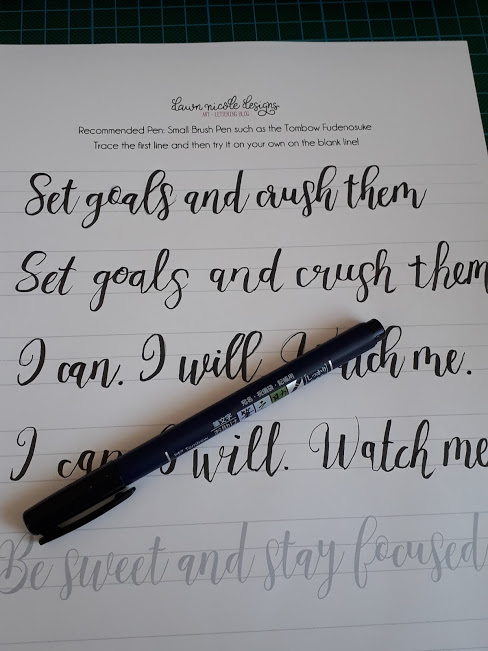 dawn nicole designs
ART + LETTERING BLOG
Recommended Pen: Small Brush Pen such as the Tombow Fudenosuke
Trace the first line and then try it on your own on the blank line!
Set goals and crush them
Set goals and crush them
I can. I will. Watch me.
I can. I will. Watch me
Be sweet and stay focused
筆文字
しっかり